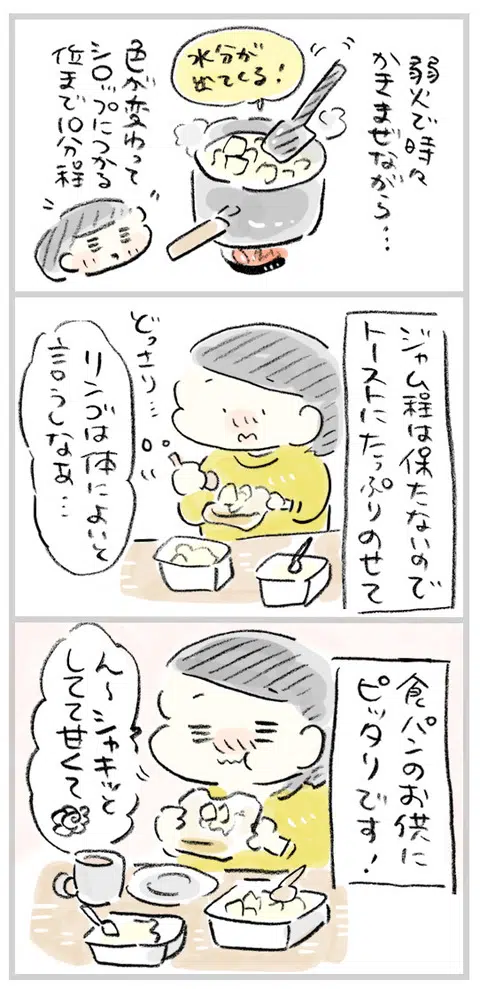 弱火で時々
かきまぜながら…
水分が
出てくる!
色が変わって
シロップにつかる
位まで10分程
ジャム程は保たないので
トーストにたっぷりのせて
どっさり…
リンゴは体によいと
言うしなぁ…
食パンのお供に
ピッタリです!
ん〜シャキッと
してて甘くて